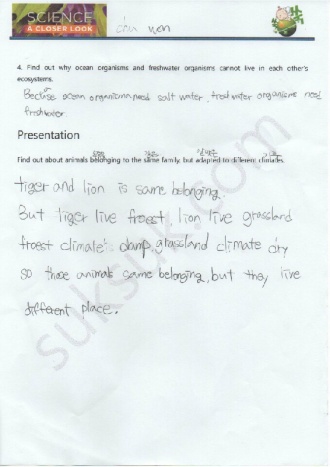 SCIENCE
A CLOSER LOOK
4. Find out why ocean organisms and freshwater organisms cannot live in each other's
ecosystems.
salt water, freshwater organisms need
freshwater.
Presentation
Find out about animals belonging to the same family, but adapted to different climates.
tiger and lion is same belonging.
But tiger live froest, lion live grassland
froest climate: damp, grassland climate dry
so those animals same belonging, but they live
different place.
suksuk.com